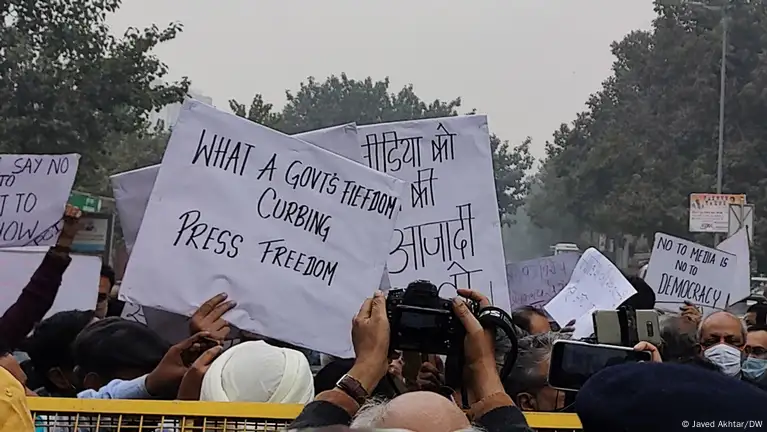 SAY NO
TO
TO
NOW
WHAT A GOVT'S FIEFDOM
CURBING
PRESS FREEDOM
मीडिया की
की
आजादी
NO TO MEDIA IS
NO TO
DEMOCRACY!
© Javed Akhtar/DW